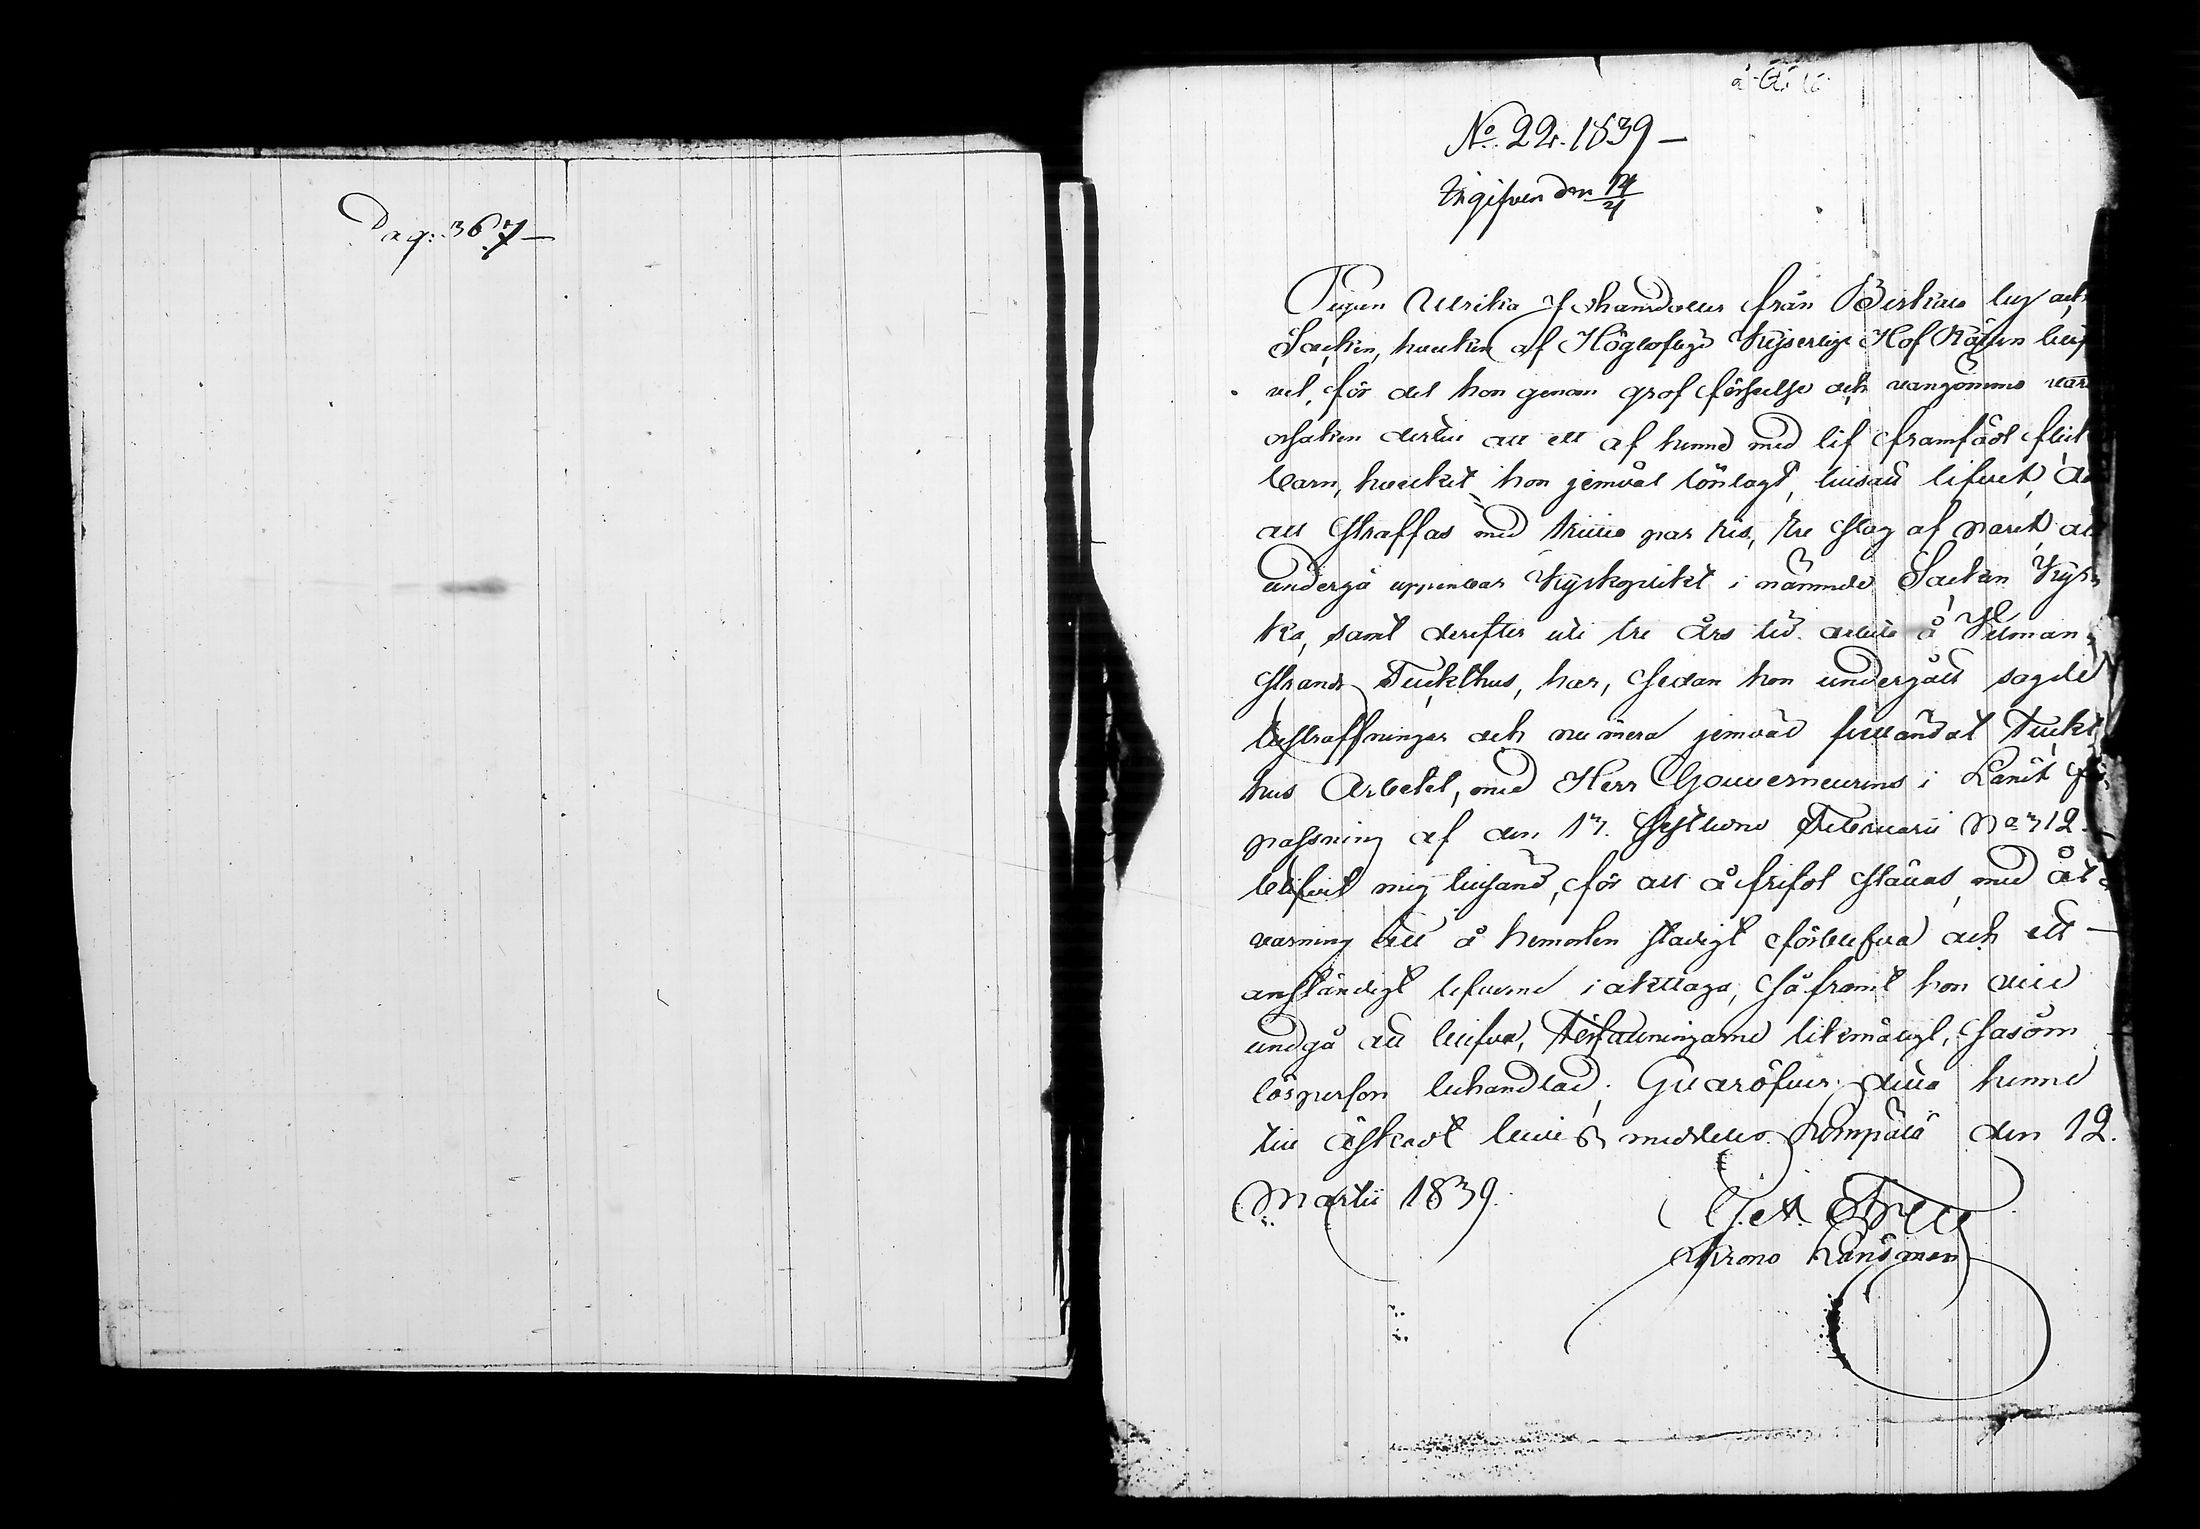 Pag: 367
No. 22. 1839
Ingifven den 14/4
Pigan Ulrika Johansdotter från Birkala by och
Socken, hvilken af Högloflige Kejserlige Hof Rätten blif
vit, för det hon genom grof förseelse och vangömmo varit
orsaken dertill att ett af henne med lif framfödt flick
barn, hvilket hon jemväl lönlagt, tillsatt lifvet,
att straffas med tiuio par ris, tre slag af paret att
undergå uppenbar Kyrkoplikt i nämnde Socken Kyr-
ka, samt derefter uti tre års tid arbeta å Vilman-
strands Tuckthus, har, sedan hon undergått sagde
bestraffningar och numera jemväl fulländat Tuckt
hus Arbetet, med Herr Gouverneurens i Länet för
passning af den 13. sistledne Februarii No 312.
blifvit mig tillsänd, för att å frifot ställas, med åt-
varning att å hemorten stadigt förblifva och ett
anständigt lefverne i akttaga, såframt hon vill
undgå att blifva, Författningarne likmätigt, såsom
lösperson behandlad; Hvaröfver detta henne
till äskadt bevis meddelas. Kumpula den 12.
Martii 1839.
Krono Länsman